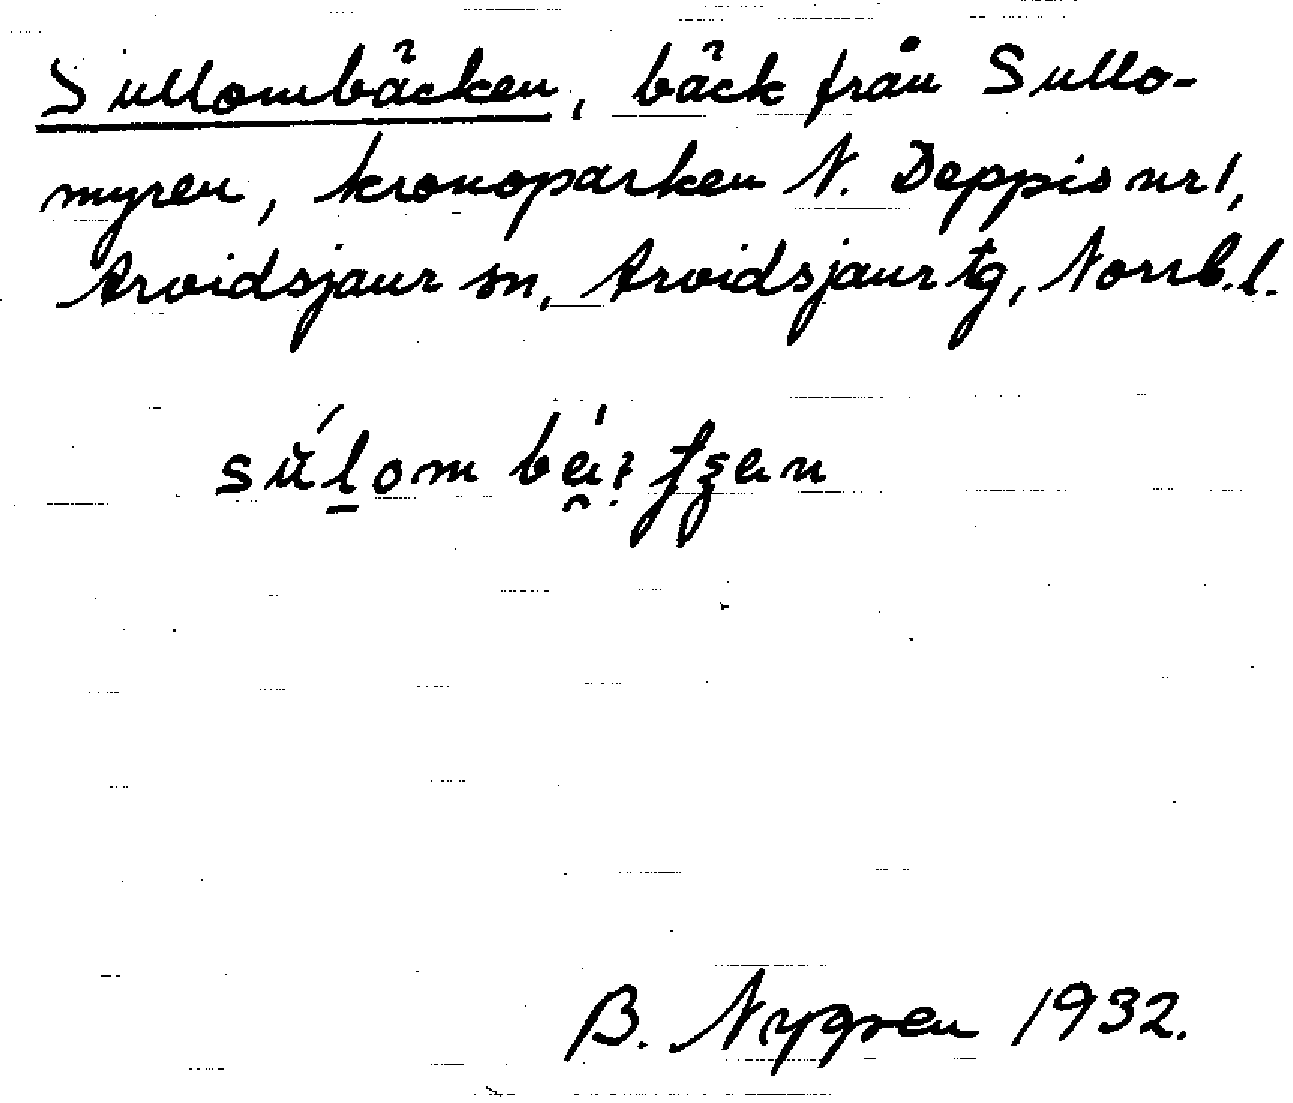 Sullombäcken, bäck från Sullo-
myren, kronoparken N. Deppis nr 1,
Arvidsjaur sn, Arvidsjaur tg, Norrb.l.
B. Nygren 1932.